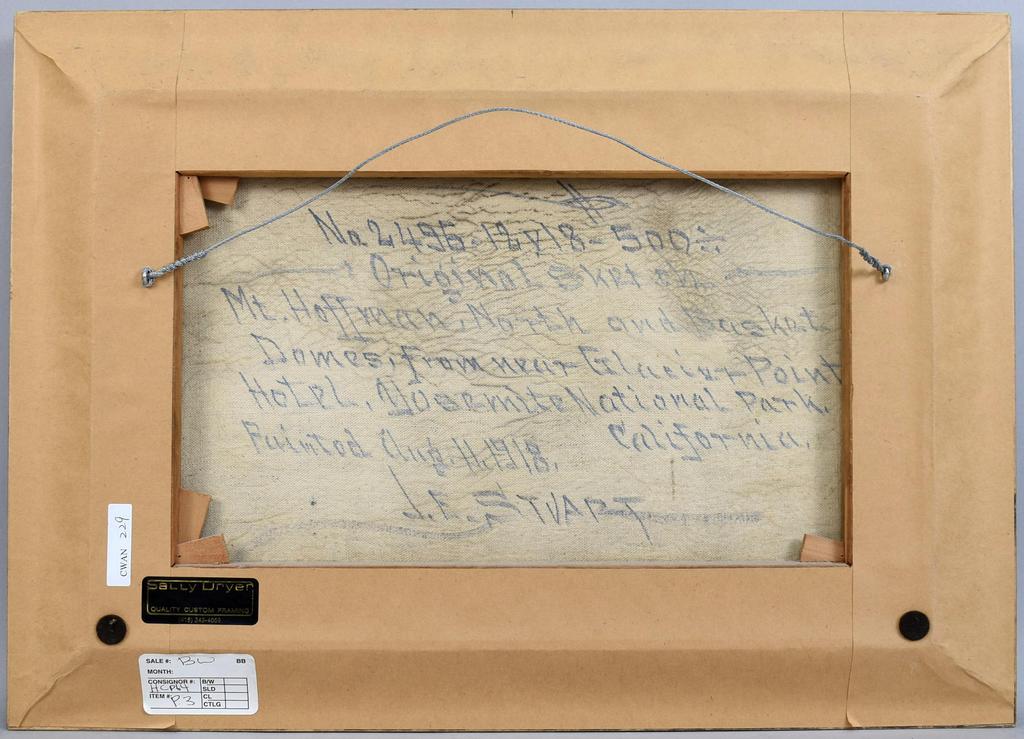 No. 2495-12x18-500
Original sketch
Mt. Hoffman, North and Basket
Domes, from near Glacier Point
Hotel, Yosemite National Park.
Painted Aug. 11. 1918. California.
J.E. STUART
CWAN 229
Sally Dryer
QUALITY CUSTOM FRAMING
SALE #: BW BB
MONTH:
CONSIGNOR #: B/W
HCP64 SLD
ITEM #: P.3 CL
CTLG